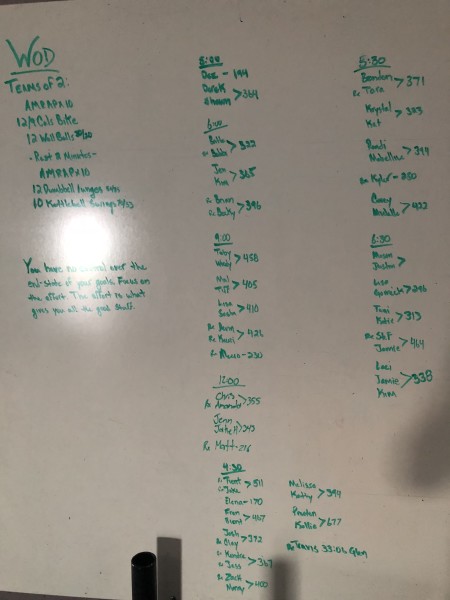 WOD
Teams of 2:
AMRAP x 10
12/9 Cals Bike
12 Wall Balls
- Rest 2 Minutes -
AMRAP x 10
12 Dumbbell Lunges
10 Kettlebell Swings
You have no control over the
end-state of your goals. Focus on
the effort. The effort is what
gives you all the good stuff.
5:00
Dez - 194
Derek
Shawn > 364
6:00
Bobbi > 322
Jen
Kim > 365
Rx Brian
Rx Becky > 396
9:00
Toby
Wendy > 458
Mal
Tiff > 405
Lisa
> 410
Rx Kerri > 426
- 230
12:00
Chris
Rx Amanda > 355
Jenn
Julie H > 343
Rx Matt - 216
4:30
Rx Trent
Rx Jake > 511
Elena - 170
Brent > 467
Josh
Rx Clay > 372
Rx Kendra
Rx Jess > 367
Rx Zach
> 400
Melissa
Kathy > 394
Preston
Kallie > 677
Rx Travis 33:06
5:30
Brandon
Rx Tara > 371
Krystal
Kat > 323
Randi
> 344
Rx Kyler - 250
Casey
Michelle > 422
6:30
Mason
Justin >
Lisa
> 296
Toni
Katie > 313
Rx Stef
Jamie > 464
Laci
Jamie
Kim > 338